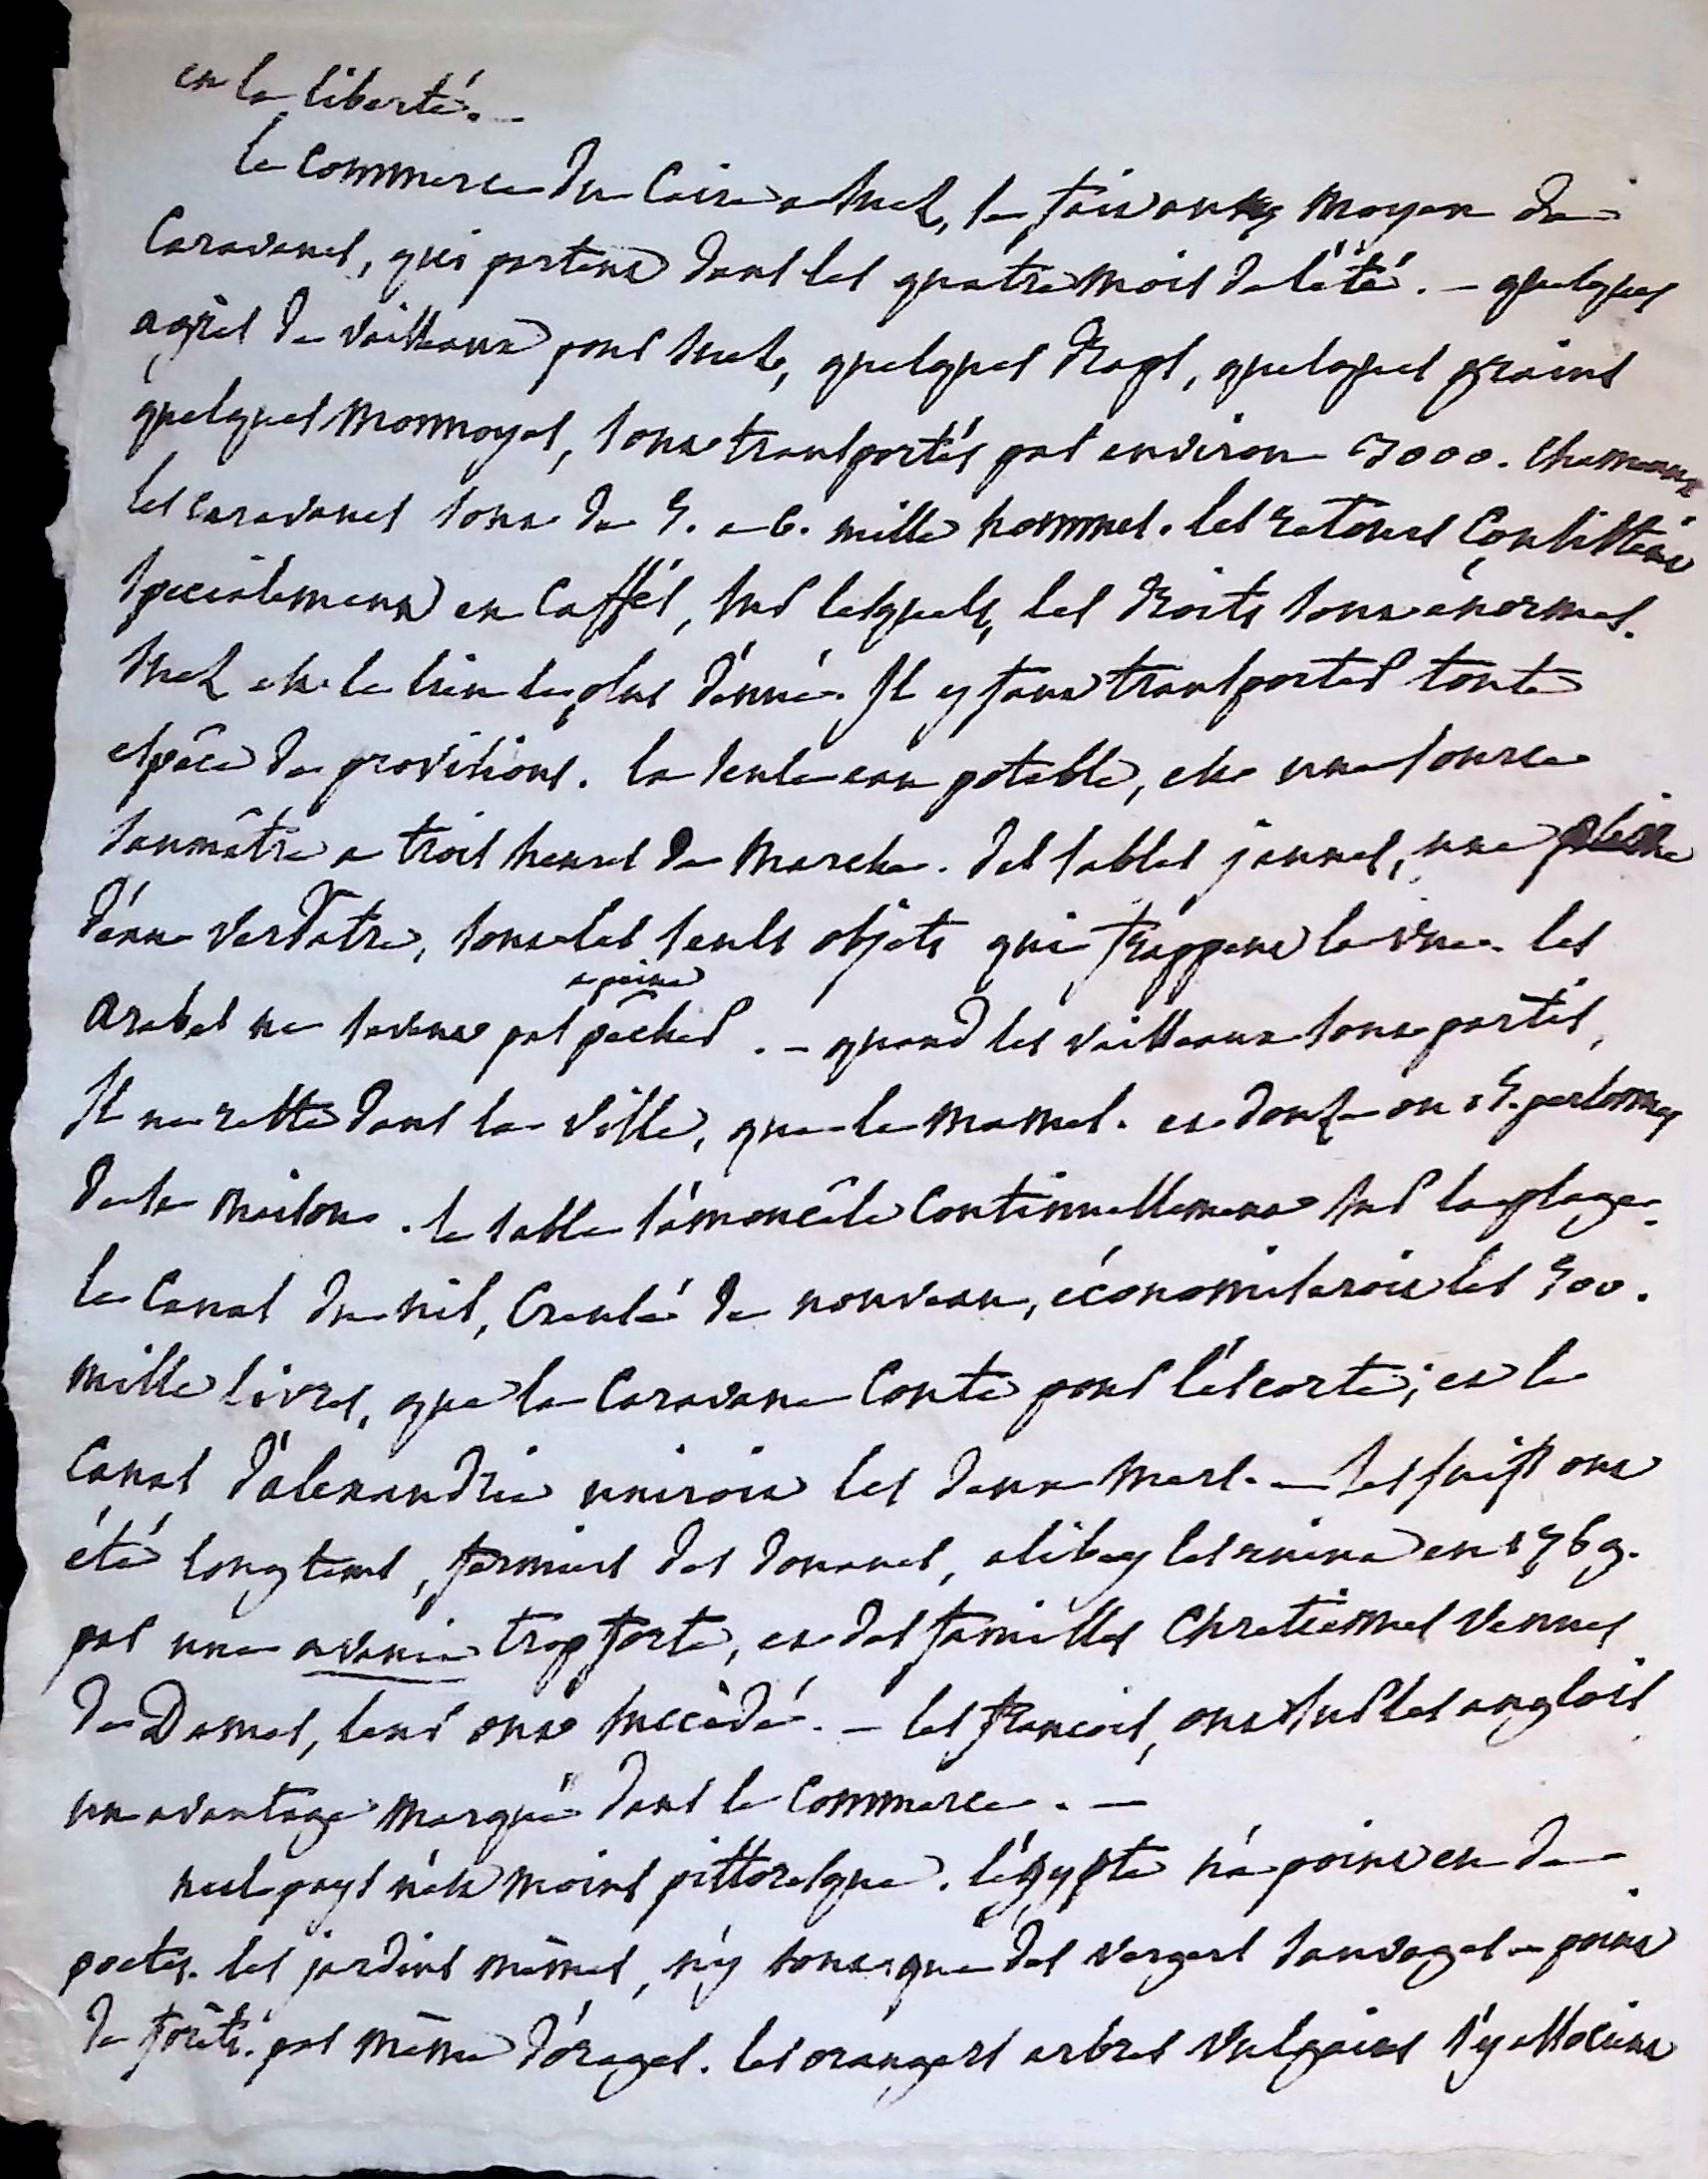 et la liberté. -
le commerce du Caire a Suez, se faisoit au moyen de
Caravanes, qui partent dans les quatre mois de l'été. - quelques
agrès de vaisseaux pour Suez, quelques draps, quelques grains
quelques monnoyes, sont transportés par environ 3000. chameaux
les caravanes sont de 5. a 6. mille hommes. les retours consistent
specialement en Caffés, sur lesquels, les droits sont énormes.
Suez est le lieu le plus dénué. Il y faut transporter toute
espèce de provisions. la seule eau potable, est une source
saumâtre a trois heures de marche. des sables jaunes, une plaine
d'eau verdatre, sont les seuls objets qui frappent la vue. les
a peine
arabes ne savent pas pêcher. - quand les vaisseaux sont partis,
Il ne reste dans la ville, que le mamel. et douze ou 15. personnes
de sa maison. le sable s'amoncèle continuellement sur la plage.
le Canal du nil, Creusé de nouveau, économiseroit les 500.
mille livres, que la Caravane Coute pour l'escorte; et le
Canal d'alexandrie uniroit les deux mers. - les juifs ont
été longtems, fermiers des douanes, alibey les ruina en 1769.
par une avanie trop forte, et des familles Chretiennes venues
de Damas, leur ont succèdé. - les françois, ont sur les anglois
un avantage marqué dans le commerce. -
nul pays n'est moins pittoresque. l'égypte n'a point eu de
poetes. les jardins mêmes, n'y sont que des vergers sauvages - point
de forêts. pas même d'orages. les orangers arbres vulgaires s'y associent